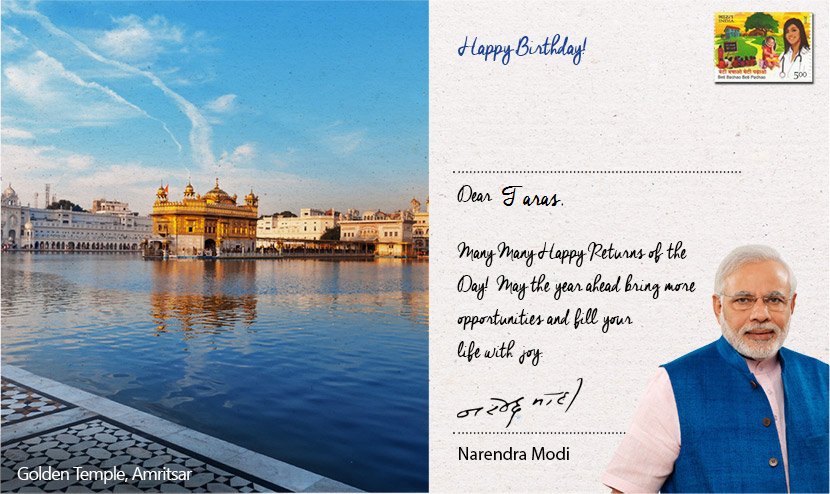 Happy Birthday!
भारत
INDIA
बेटी बचाओ बेटी पढ़ाओ
Beti Bachao Beti Padhao
5.00
Dear Taras.
Many Many Happy Returns of the
Day! May the year ahead bring more
opportunities and fill your
life with joy.
नरेन्द्र मोदी
Narendra Modi
Golden Temple, Amritsar